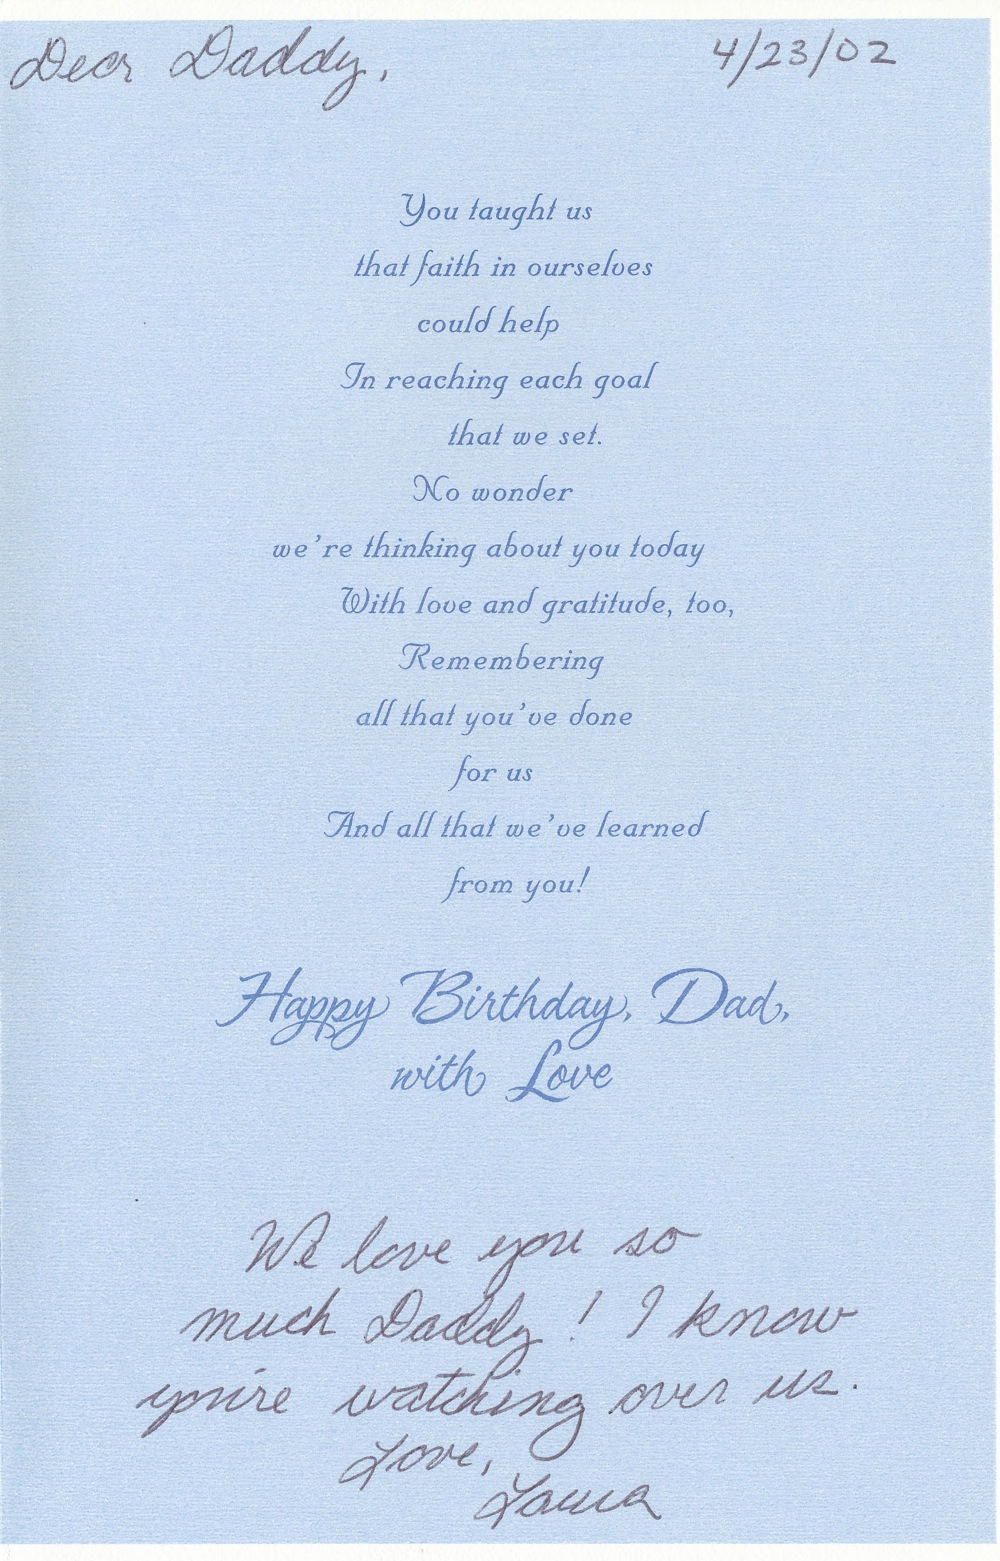 Dear Daddy, 4/23/02
You taught us
that faith in ourselves
could help
In reaching each goal
that we set.
No wonder
we're thinking about you today
With love and gratitude, too,
Remembering
all that you've done
for us
And all that we've learned
from you!
Happy Birthday, Dad,
with Love
We love you so
much Daddy! I know
you're watching over us.
Love,
Laura